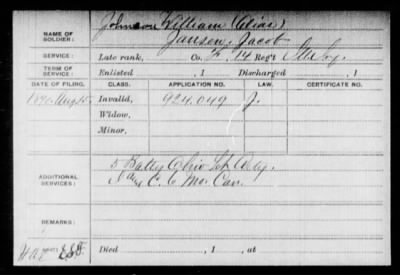 Johnson, William (Alias)
NAME OF SOLDIER: Jansen, Jacob
SERVICE: Late rank, Co. F, 14 Reg't
TERM OF SERVICE: Enlisted , 1 Discharged , 1
DATE OF FILING. CLASS. APPLICATION NO. LAW. CERTIFICATE NO.
1890 Aug 15 Invalid, 924.049 J.
Widow,
Minor,
ADDITIONAL SERVICES: 5 Batty Ohio
C. C. Mo. Cav.
REMARKS:
Died , 1 , at